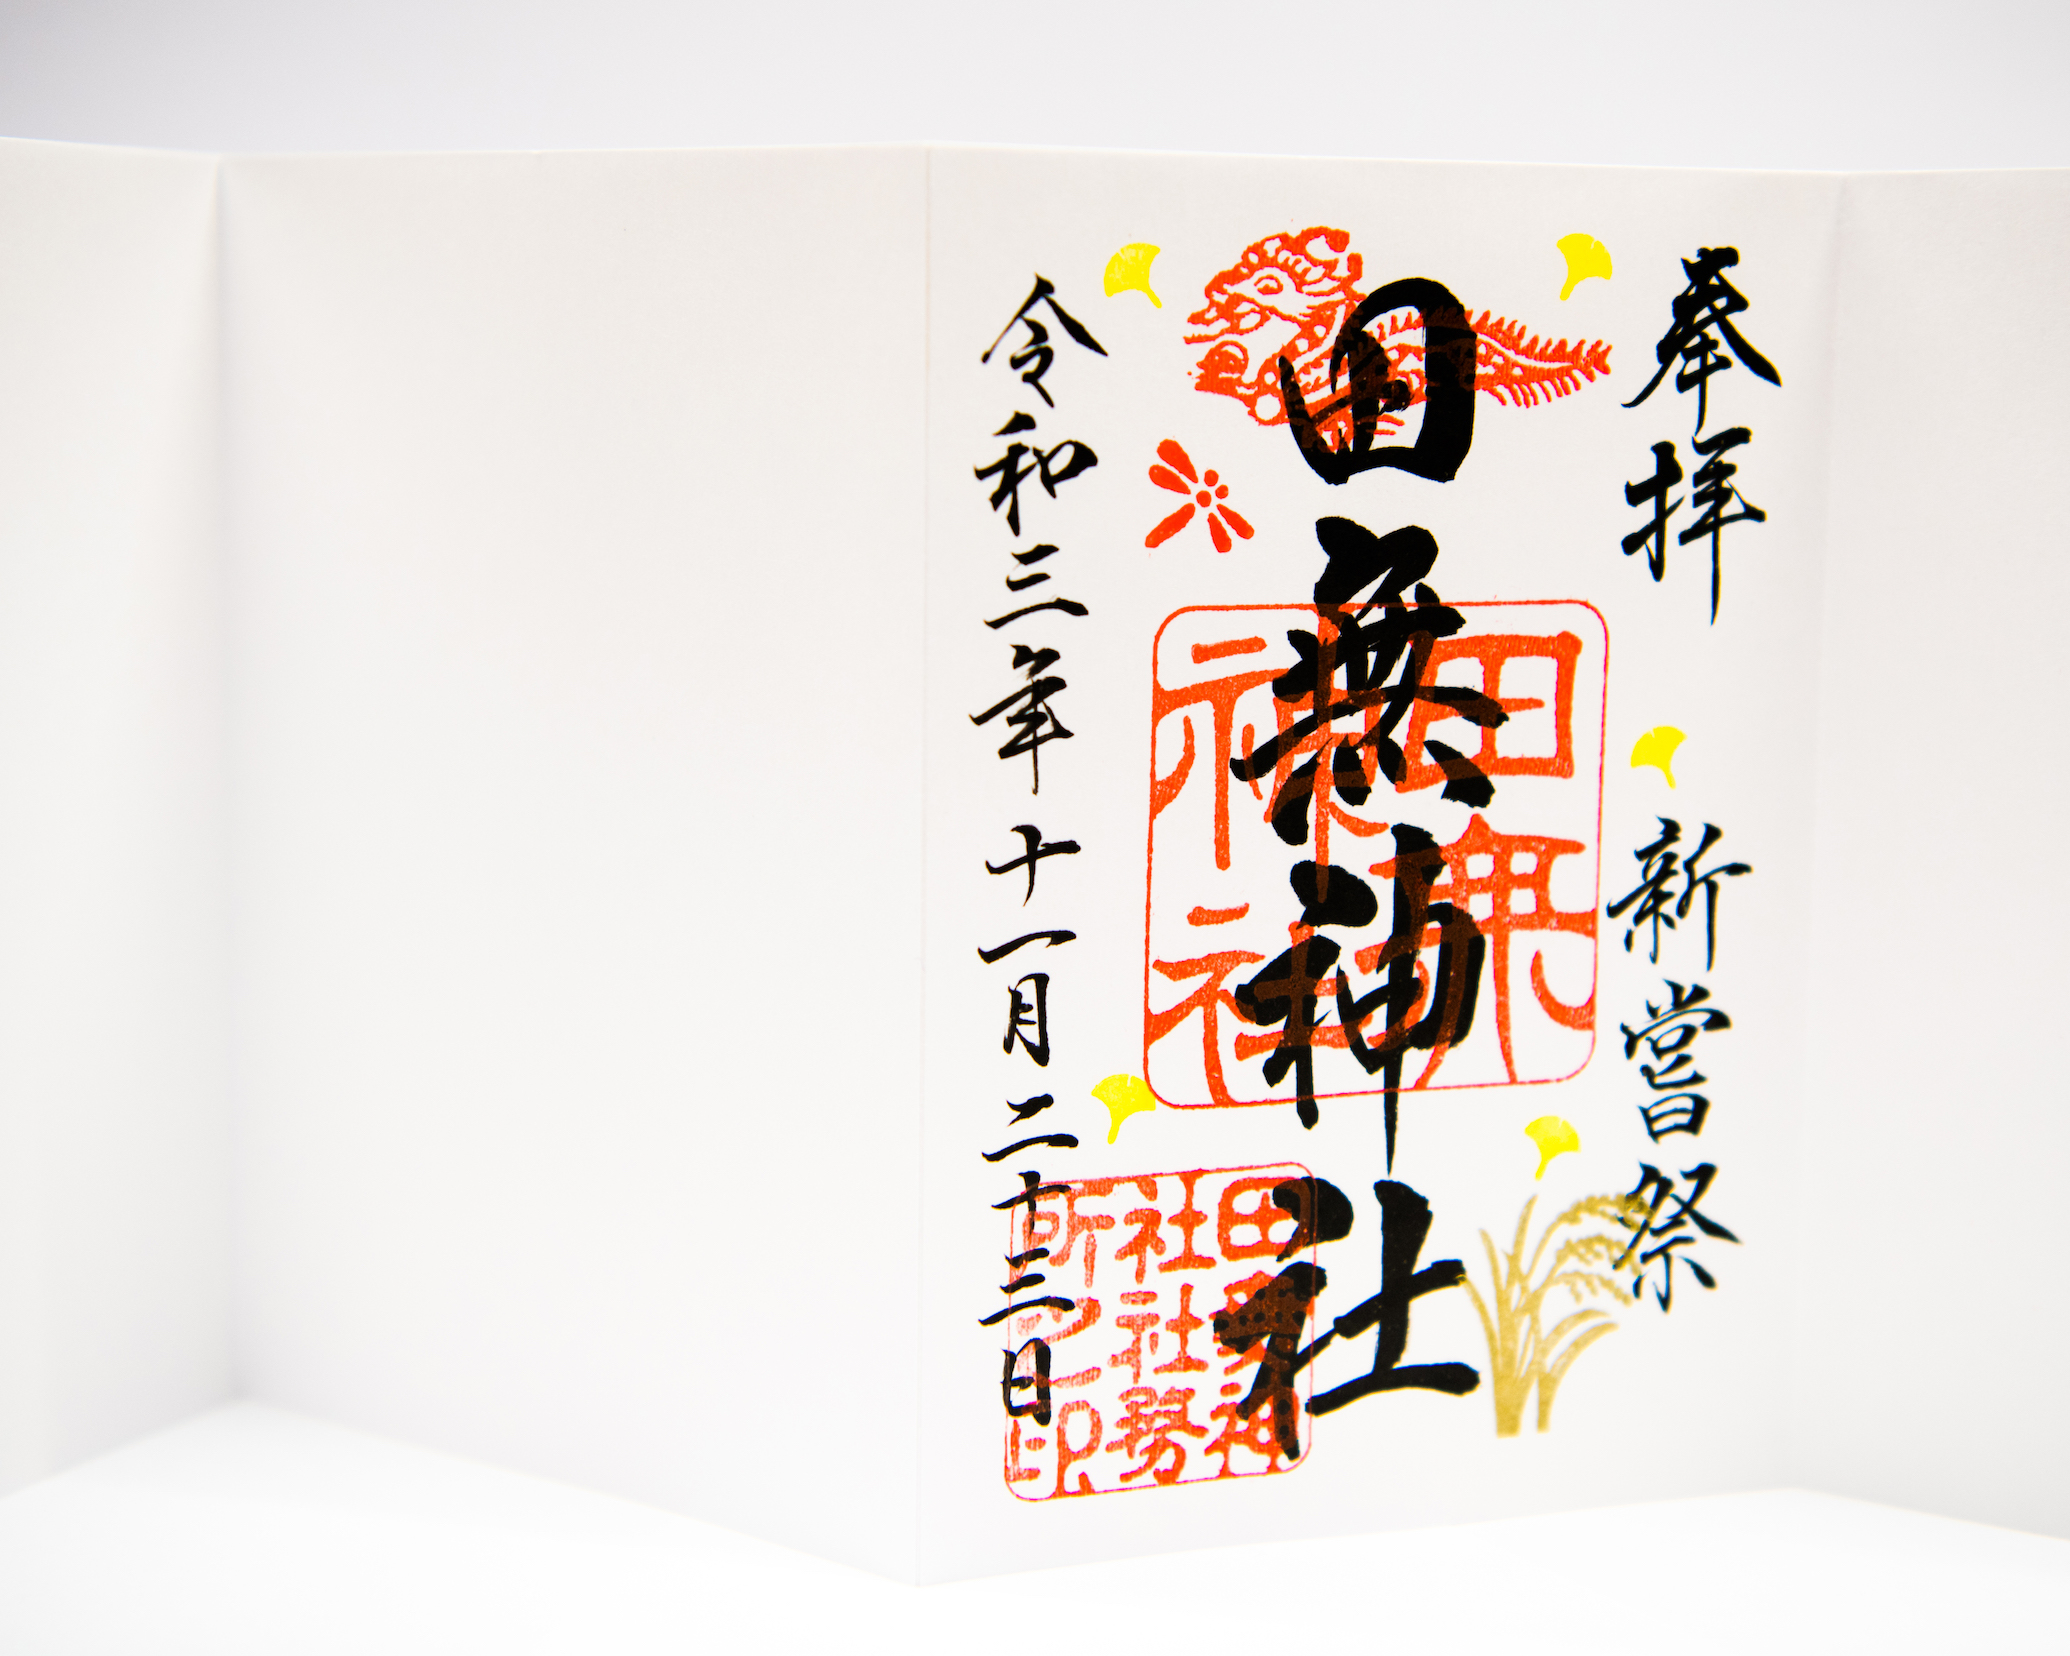 奉拝
新嘗祭
田無神社
田無神社
田無神
社社務
所之印
令和三年十一月二十三日